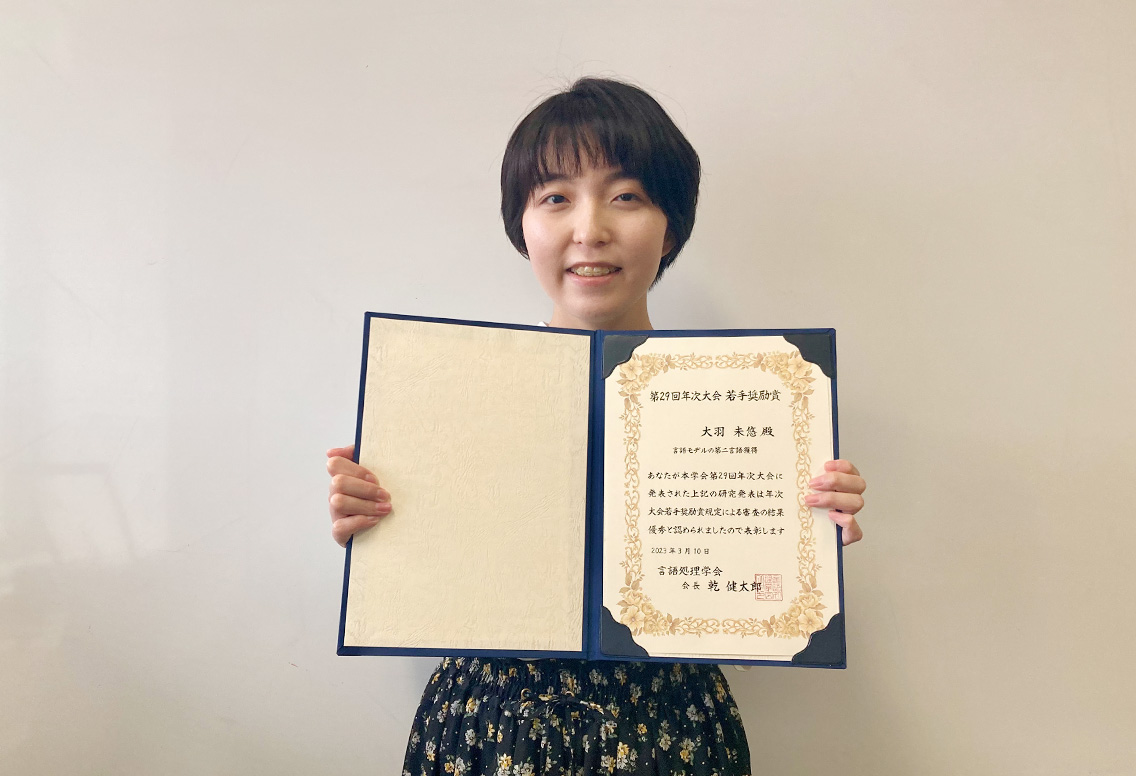 第29回年次大会 若手奨励賞
大羽 未悠 殿
言語モデルの第二言語獲得
あなたが本学会第29回年次大会に
発表された上記の研究発表は年次
大会若手奨励賞規定による審査の結果
優秀と認められましたので表彰します
2023年3月10日
言語処理学会
会長 乾 健太郎